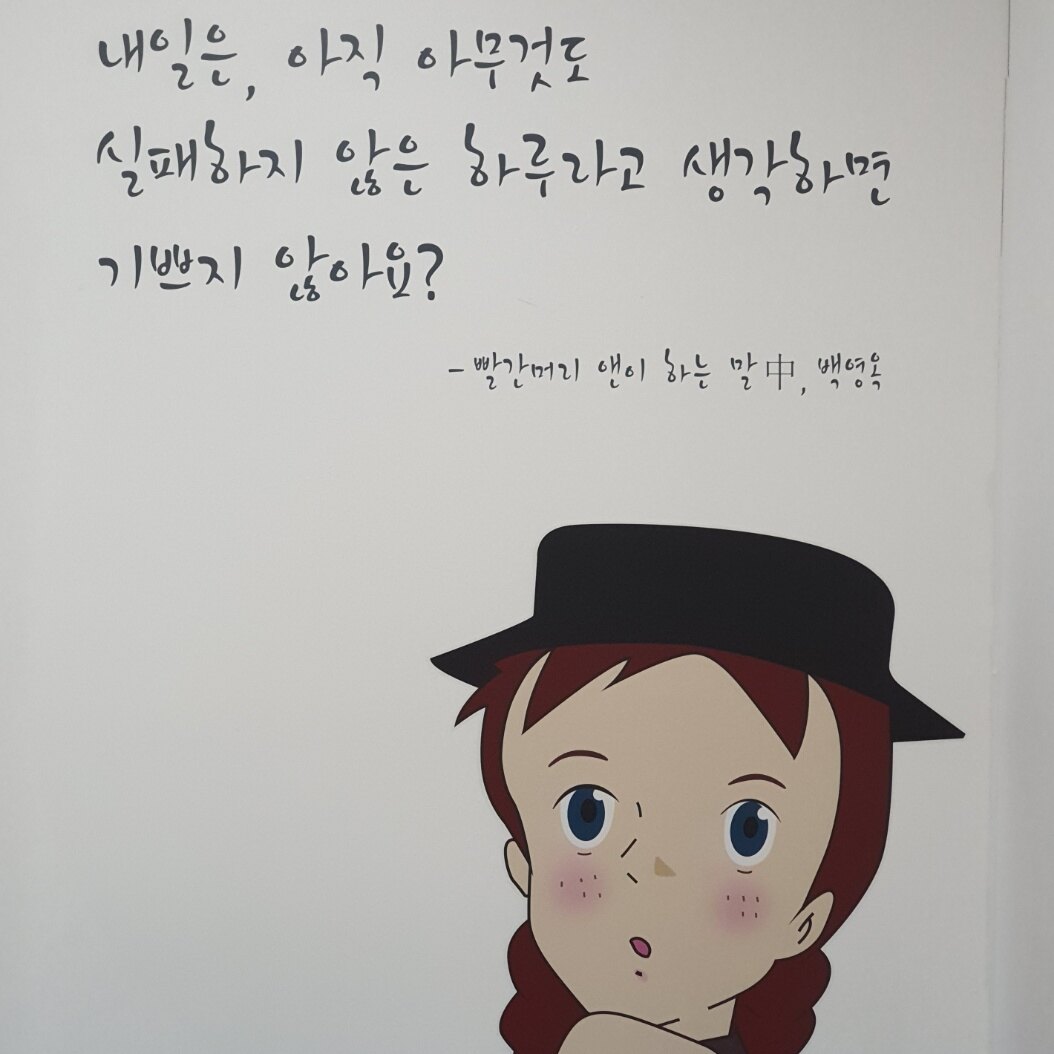 내일은, 아직 아무것도
실패하지 않은 하루라고 생각하면
기쁘지 않아요?
- 빨간머리 앤이 하는 말中, 백영옥